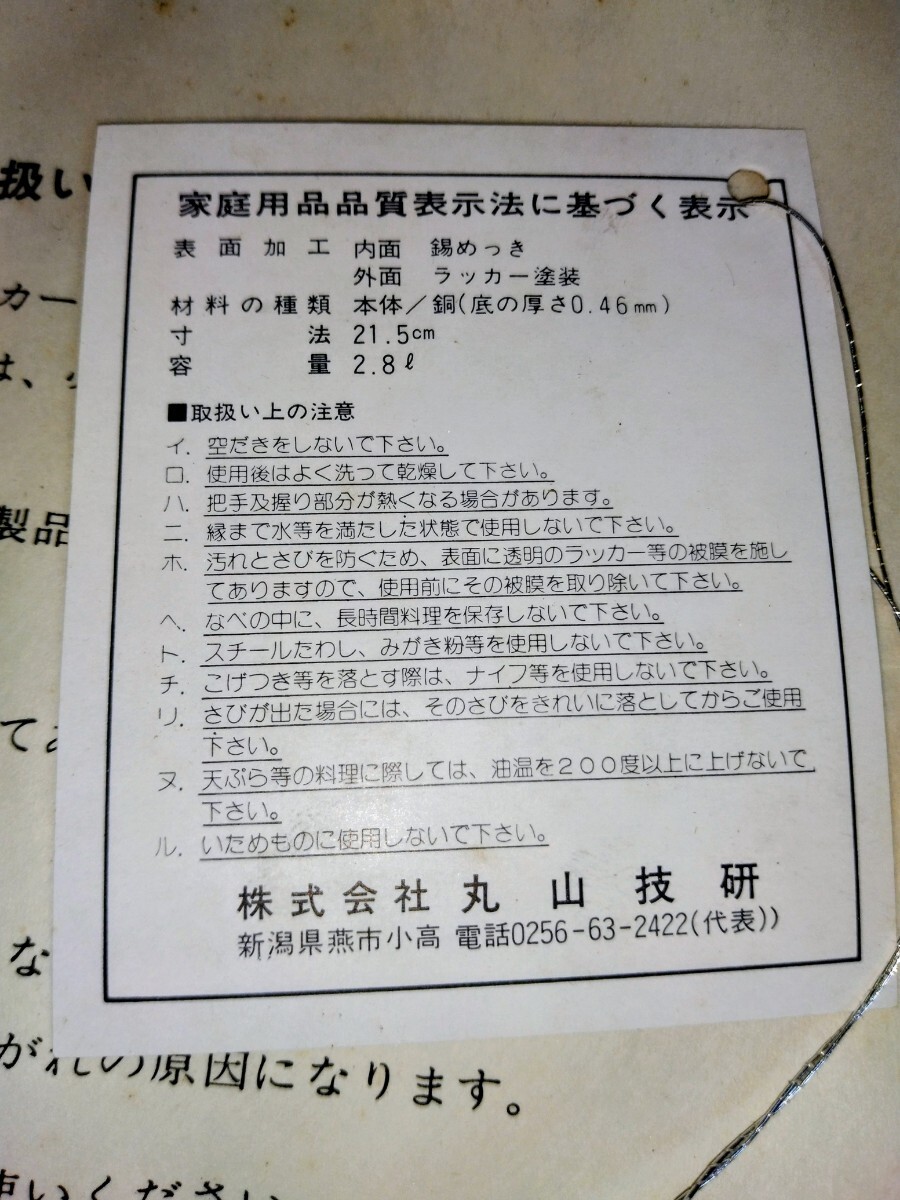 扱い
カー
は、
製品
てあ
な
家庭用品品質表示法に基づく表示
表面加工 内面 錫めっき
外面 ラッカー塗装
材料の種類 本体/銅(底の厚さ0.46mm)
寸法 21.5cm
容量 2.8ℓ
■取扱い上の注意
イ. 空だきをしないで下さい。
ロ. 使用後はよく洗って乾燥して下さい。
ハ. 把手及握り部分が熱くなる場合があります。
ニ. 縁まで水等を満たした状態で使用しないで下さい。
ホ. 汚れとさびを防ぐため、表面に透明のラッカー等の被膜を施し
てありますので、使用前にその被膜を取り除いて下さい。
ヘ. なべの中に、長時間料理を保存しないで下さい。
ト. スチールたわし、みがき粉等を使用しないで下さい。
チ. こげつき等を落とす際は、ナイフ等を使用しないで下さい。
リ. さびが出た場合には、そのさびをきれいに落としてからご使用
下さい。
ヌ. 天ぷら等の料理に際しては、油温を200度以上に上げないで
下さい。
ル. いためものに使用しないで下さい。
株式会社 丸山技研
新潟県燕市小高 電話0256-63-2422(代表))
がれの原因になります。
使いください